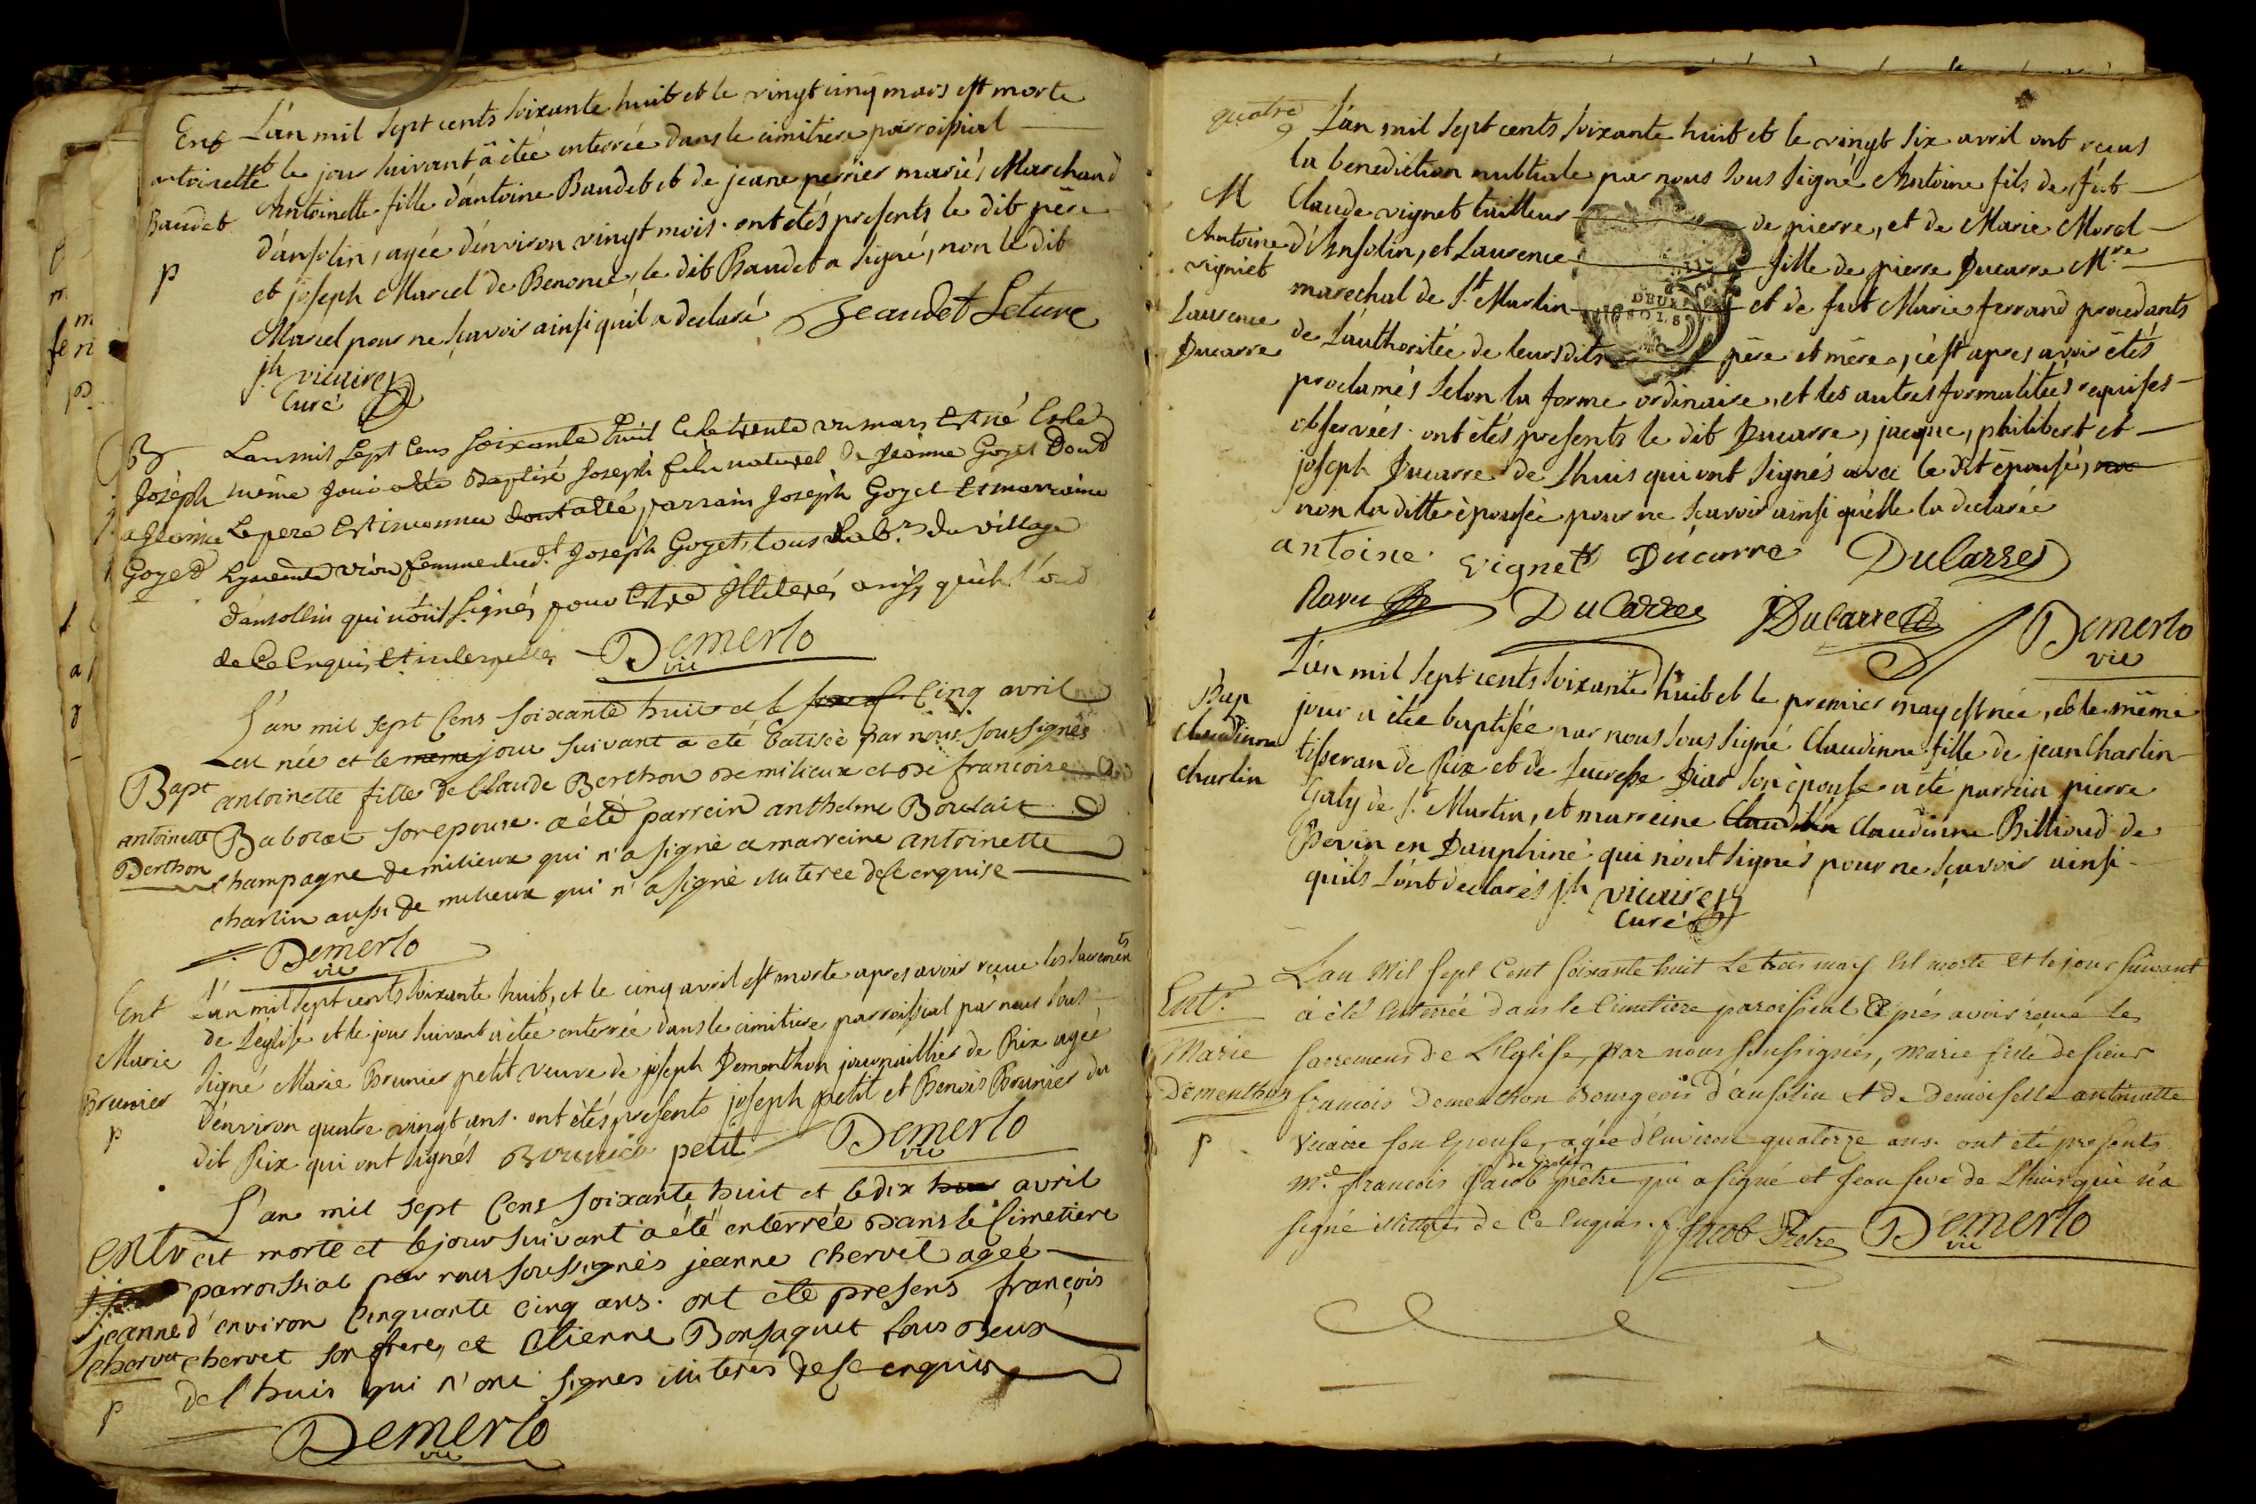 Ent L'an mil sept cents soixante huit et le vingt cinq mars est morte
antoinette et le jour suivant a étée enterrée dans le cimitiere parroissial
Baudet Antoinette fille d'antoine Baudet et de jeane perrier mariés Marchand
p d'ansolin, agée d'environ vingt mois. ont étés presents le dit père
et joseph Marcel de Benonce, le dit Baudet a signé, non le dit
Marcel pour ne sçavoir ainsi qu'il a declaré Beaudet
jh vicaire
Curé
B L'an mil sept cens soixante huit et le trente un mars est né et le
Joseph même jour a été Baptisé Joseph fils naturel de Jeanne Goyet
a Jeanne le pere est inconnu parrain Joseph Goyet et marraine
Goyet femme dud.t Joseph Goyet, tous du village
d'ansollin qui n'ont signés pour estre Illiterés ainsy qu'ils l'ont
de ce Enquis et interpellés Demerlo
vic
L'an mil sept cens soixante huit et le cinq avril
est née et le jour suivant a été batisée par nous soussignés
Bapt antoinette fille de Claude Berthon de milieux et de francoise
antoinette Baborat son epouse. a été parrein anthelme
Berthon champagne de milieux qui n'a signé et marreine antoinette
charlin aussi de milieux qui n'a signé illiteree de ce enquise
Demerlo
vic
Ent L'an mil sept cents soixante huit, et le cinq avril est morte apres avoir reçue les sacrements
de L'eglise et le jour suivant a étée enterrée dans le cimitiere parroissial par nous sous
Marie signé Marie Brunier petit veuve de joseph Demonthon journaillier de Rix agée
Brunier d'environ quatre vingt ans. ont étés presents joseph petit et Benois Brunier du
p dit Rix qui ont signés Brunier petit Demerlo
vic
L'an mil sept cens soixante huit et le dix avril
entr est morte et le jour suivant a été enterrée dans le cimetiere
parroissial par nous soussignés jeanne chervet ageé
jeanne d'environ cinquante cinq ans. ont été presens françois
chervet chervet son frere, et etienne Bonfaquet tous deux
p de l'huis qui n'ont signes illiterés de ce enquis
Demerlo
vic
quatre
9 L'an mil sept cents soixante huit et le vingt six avril ont reçus
la benediction nubtiale par nous sous signé Antoine fils de fut
M Claude vignet tailleur de pierre, et de Marie Morel
Antoine d'Ansolin, et Laurence fille de pierre Ducarre Mtre
vigniet marechal de S.t Martin et de fut Marie ferrand procedants
Laurence de L'authoritée de leurs dits père et mère, c'est apres avoir étés
Ducarre proclamés selon la forme ordinaire, et les autres formalitées requises
observées. ont étés presents le dit Ducarre, jacque, philibert et
joseph Ducarre de Lhuis qui ont signés avec le dit épousé,
non la ditte épousée pour ne sçavoir ainsi qu'elle la declarée
antoine vignet Ducarre DuCarre
Ravu DuCarre DuCarre Demerlo
vic
L'an mil sept cents soixante huit et le premier may est née, et le même
Bap jour a étée baptisée par nous sous signé Claudinne fille de jean Charlin
Claudinne tisseran de Rix et de Lucresse Diar son épouse a été parrein pierre
charlin Galy de S.t Martin, et marreine Claudinne Billioud de
Bovin en Dauphiné qui n'ont signés pour ne sçavoir ainsi
quils l'ont declarés jh vicaire
Curé
L'an Mil sept Cent soixante huit Le trois may Est morte Et le jour suivant
Ent.r à été Enterrée dans le Cimetiere paroissial après avoir reçue les
Marie sacremens de L'Eglise, par nous soussignés, marie fille de sieur
Dementhon francois Dementhon Bourgeois d'ansolin et de Demoiselle antoinette
p Vicaire son Epouse, agée d'Environ quatorze ans. ont été presents
m.e francois Jacob pretre qui a signé et jean seve de Lhuis qui n'a
signé illiteré de Ce Enquis. Jacob Pretre Demerlo
vic